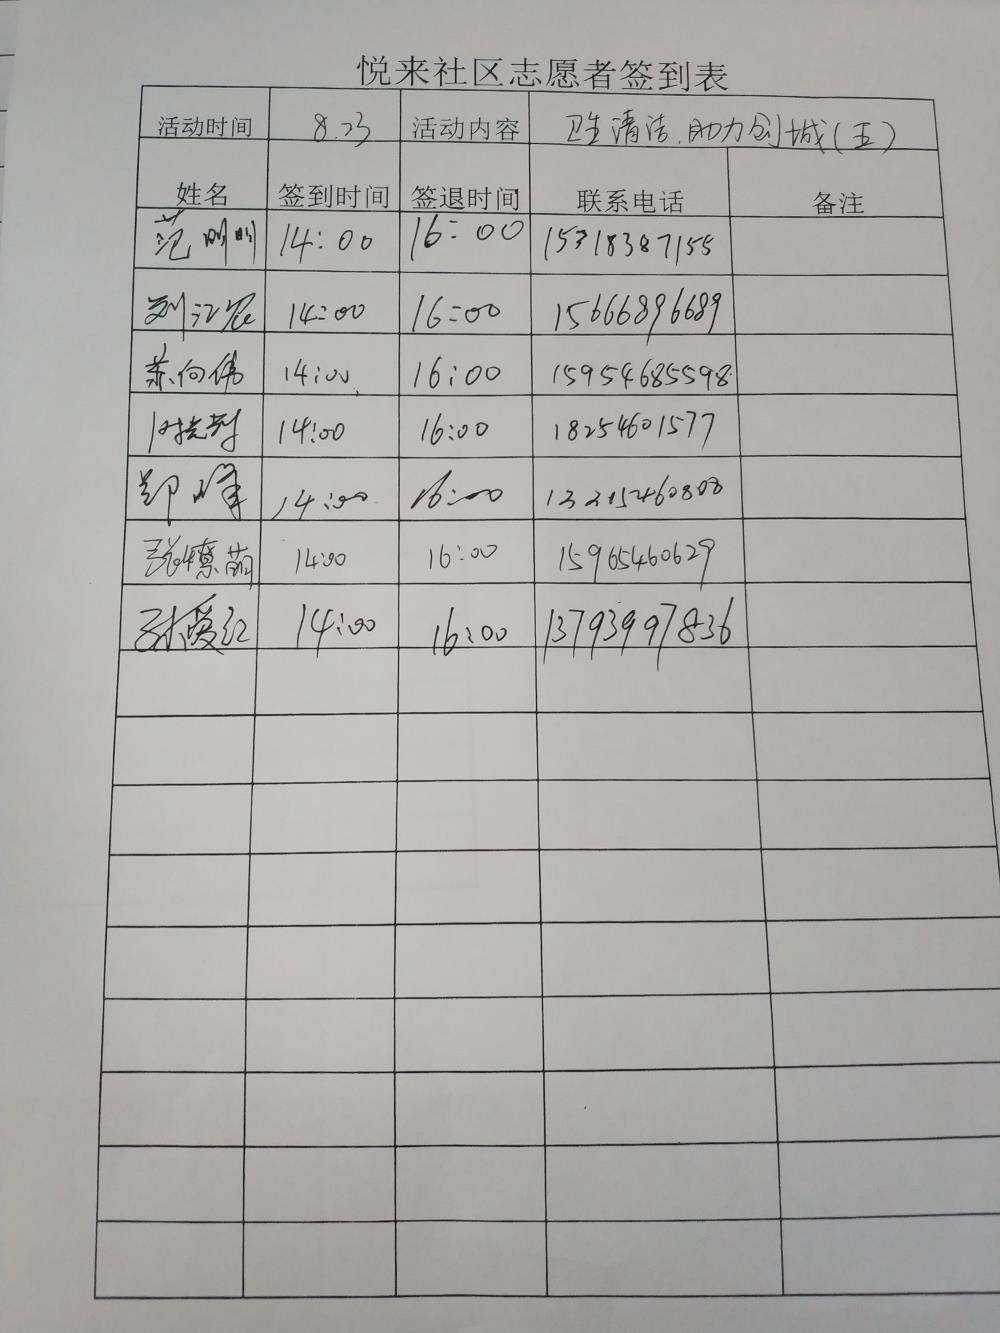 悦来社区志愿者签到表
活动时间 8.23 活动内容 卫生清洁.助力创城(五)
姓名 签到时间 签退时间 联系电话 备注
范明明 14:00 16:00 15318387155
刘江宏 14:00 16:00 15666896689
苏向伟 14:00 16:00 15954685598
14:00 16:00 18254601577
郑峰 14:00 16:00
萌 14:00 16:00 15965460629
孙爱红 14:00 16:00 13793997836